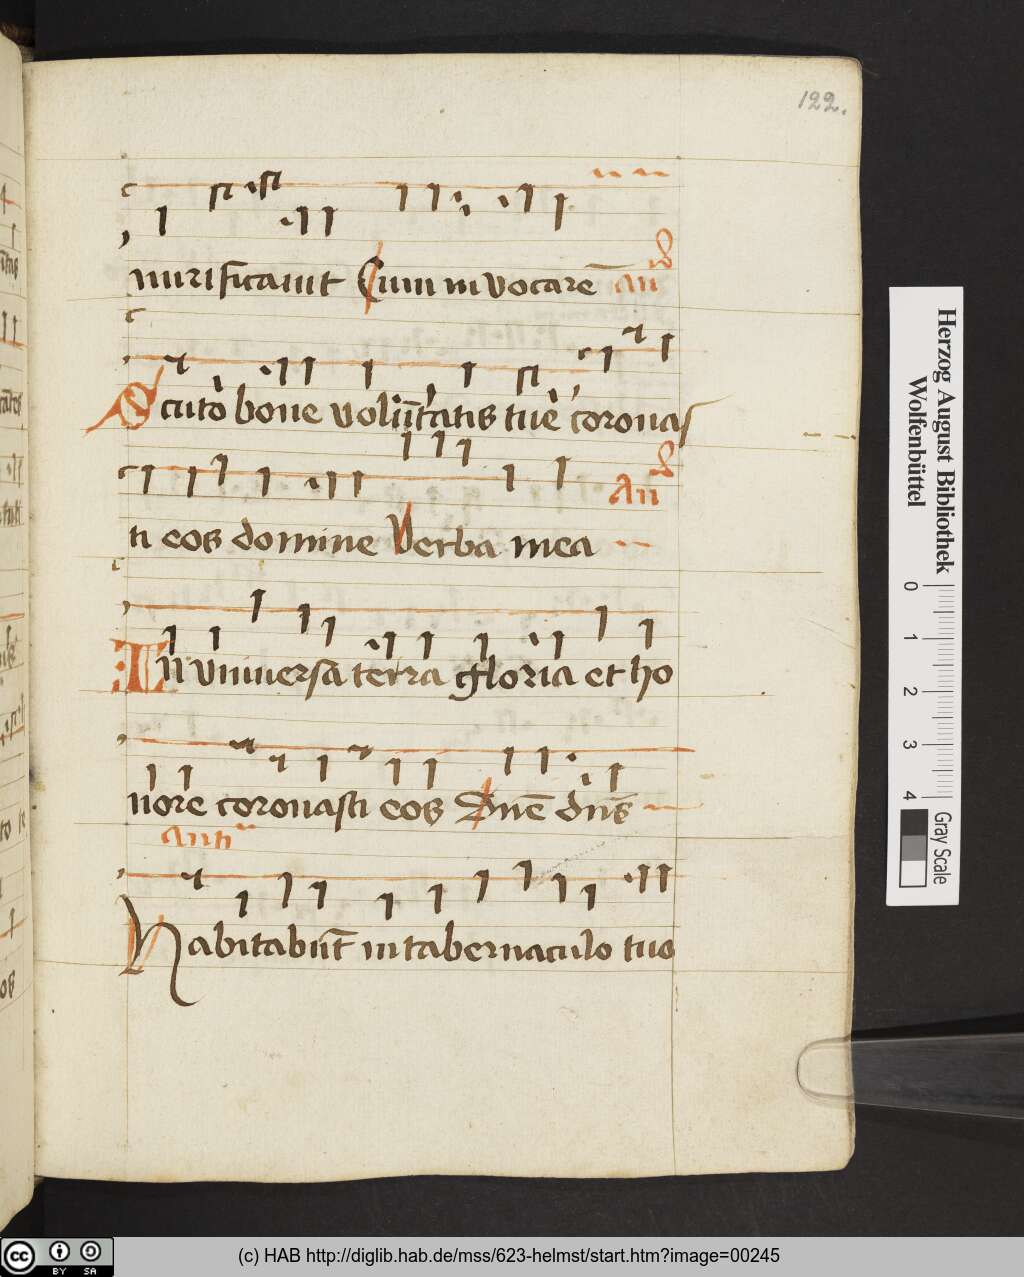 122.
mirificauit Cum invocarē an
Scuto bone volūtatis tue coronas
ti eos domine Verba mea
An
In vniuersa terra gloria et ho
nore coronasti eos Dn̄e dn̄s
Anti
Habitabūt in tabernaculo tuo
Herzog August Bibliothek
Wolfenbüttel
0 1 2 3 4
Gray Scale
cc BY SA
(c) HAB http://diglib.hab.de/mss/623-helmst/start.htm?image=00245